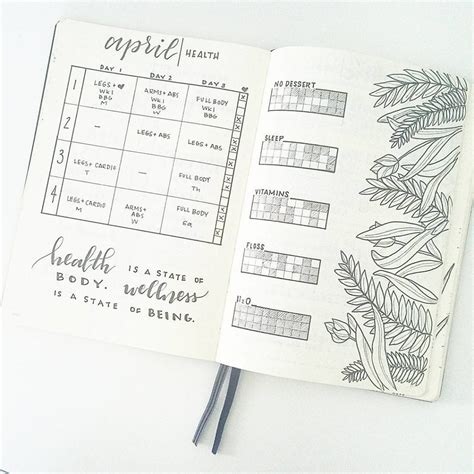 april | HEALTH
DAY 1 DAY 2 DAY 3
1 LEGS + ARMS + ABS FULL BODY
WK1 WK1 BBG
BBG BBG
M W
2 – LEGS + ABS LEGS + ABS
3 LEGS + CARDIO – FULL BODY
T Th
4 LEGS + CARDIO ARMS + ABS FULL BODY
M W Sa
health IS A STATE OF
BODY. wellness
IS A STATE OF BEING.
NO DESSERT
SLEEP
VITAMINS
FLOSS
H2O